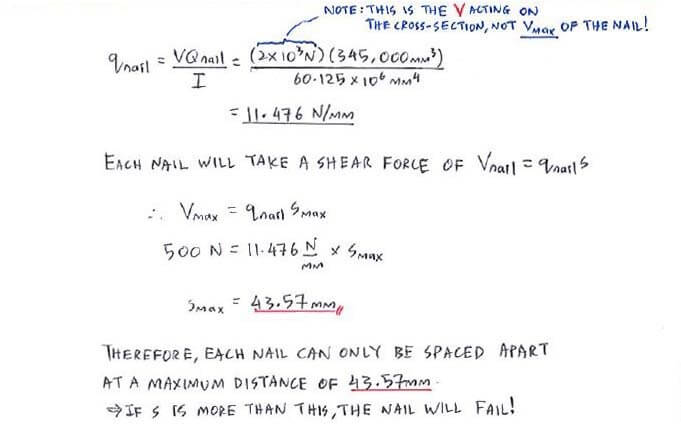 NOTE: THIS IS THE V ACTING ON
THE CROSS-SECTION, NOT Vmax OF THE NAIL!
qnail = VQnail / I = (2×10³N)(345,000mm³) / 60.125×10⁶ mm⁴
= 11.476 N/mm
EACH NAIL WILL TAKE A SHEAR FORCE OF Vnail = qnail s
∴ Vmax = qnail smax
500 N = 11.476 N/mm × smax
smax = 43.57mm
THEREFORE, EACH NAIL CAN ONLY BE SPACED APART
AT A MAXIMUM DISTANCE OF 43.57mm.
⇒ IF S IS MORE THAN THIS, THE NAIL WILL FAIL!